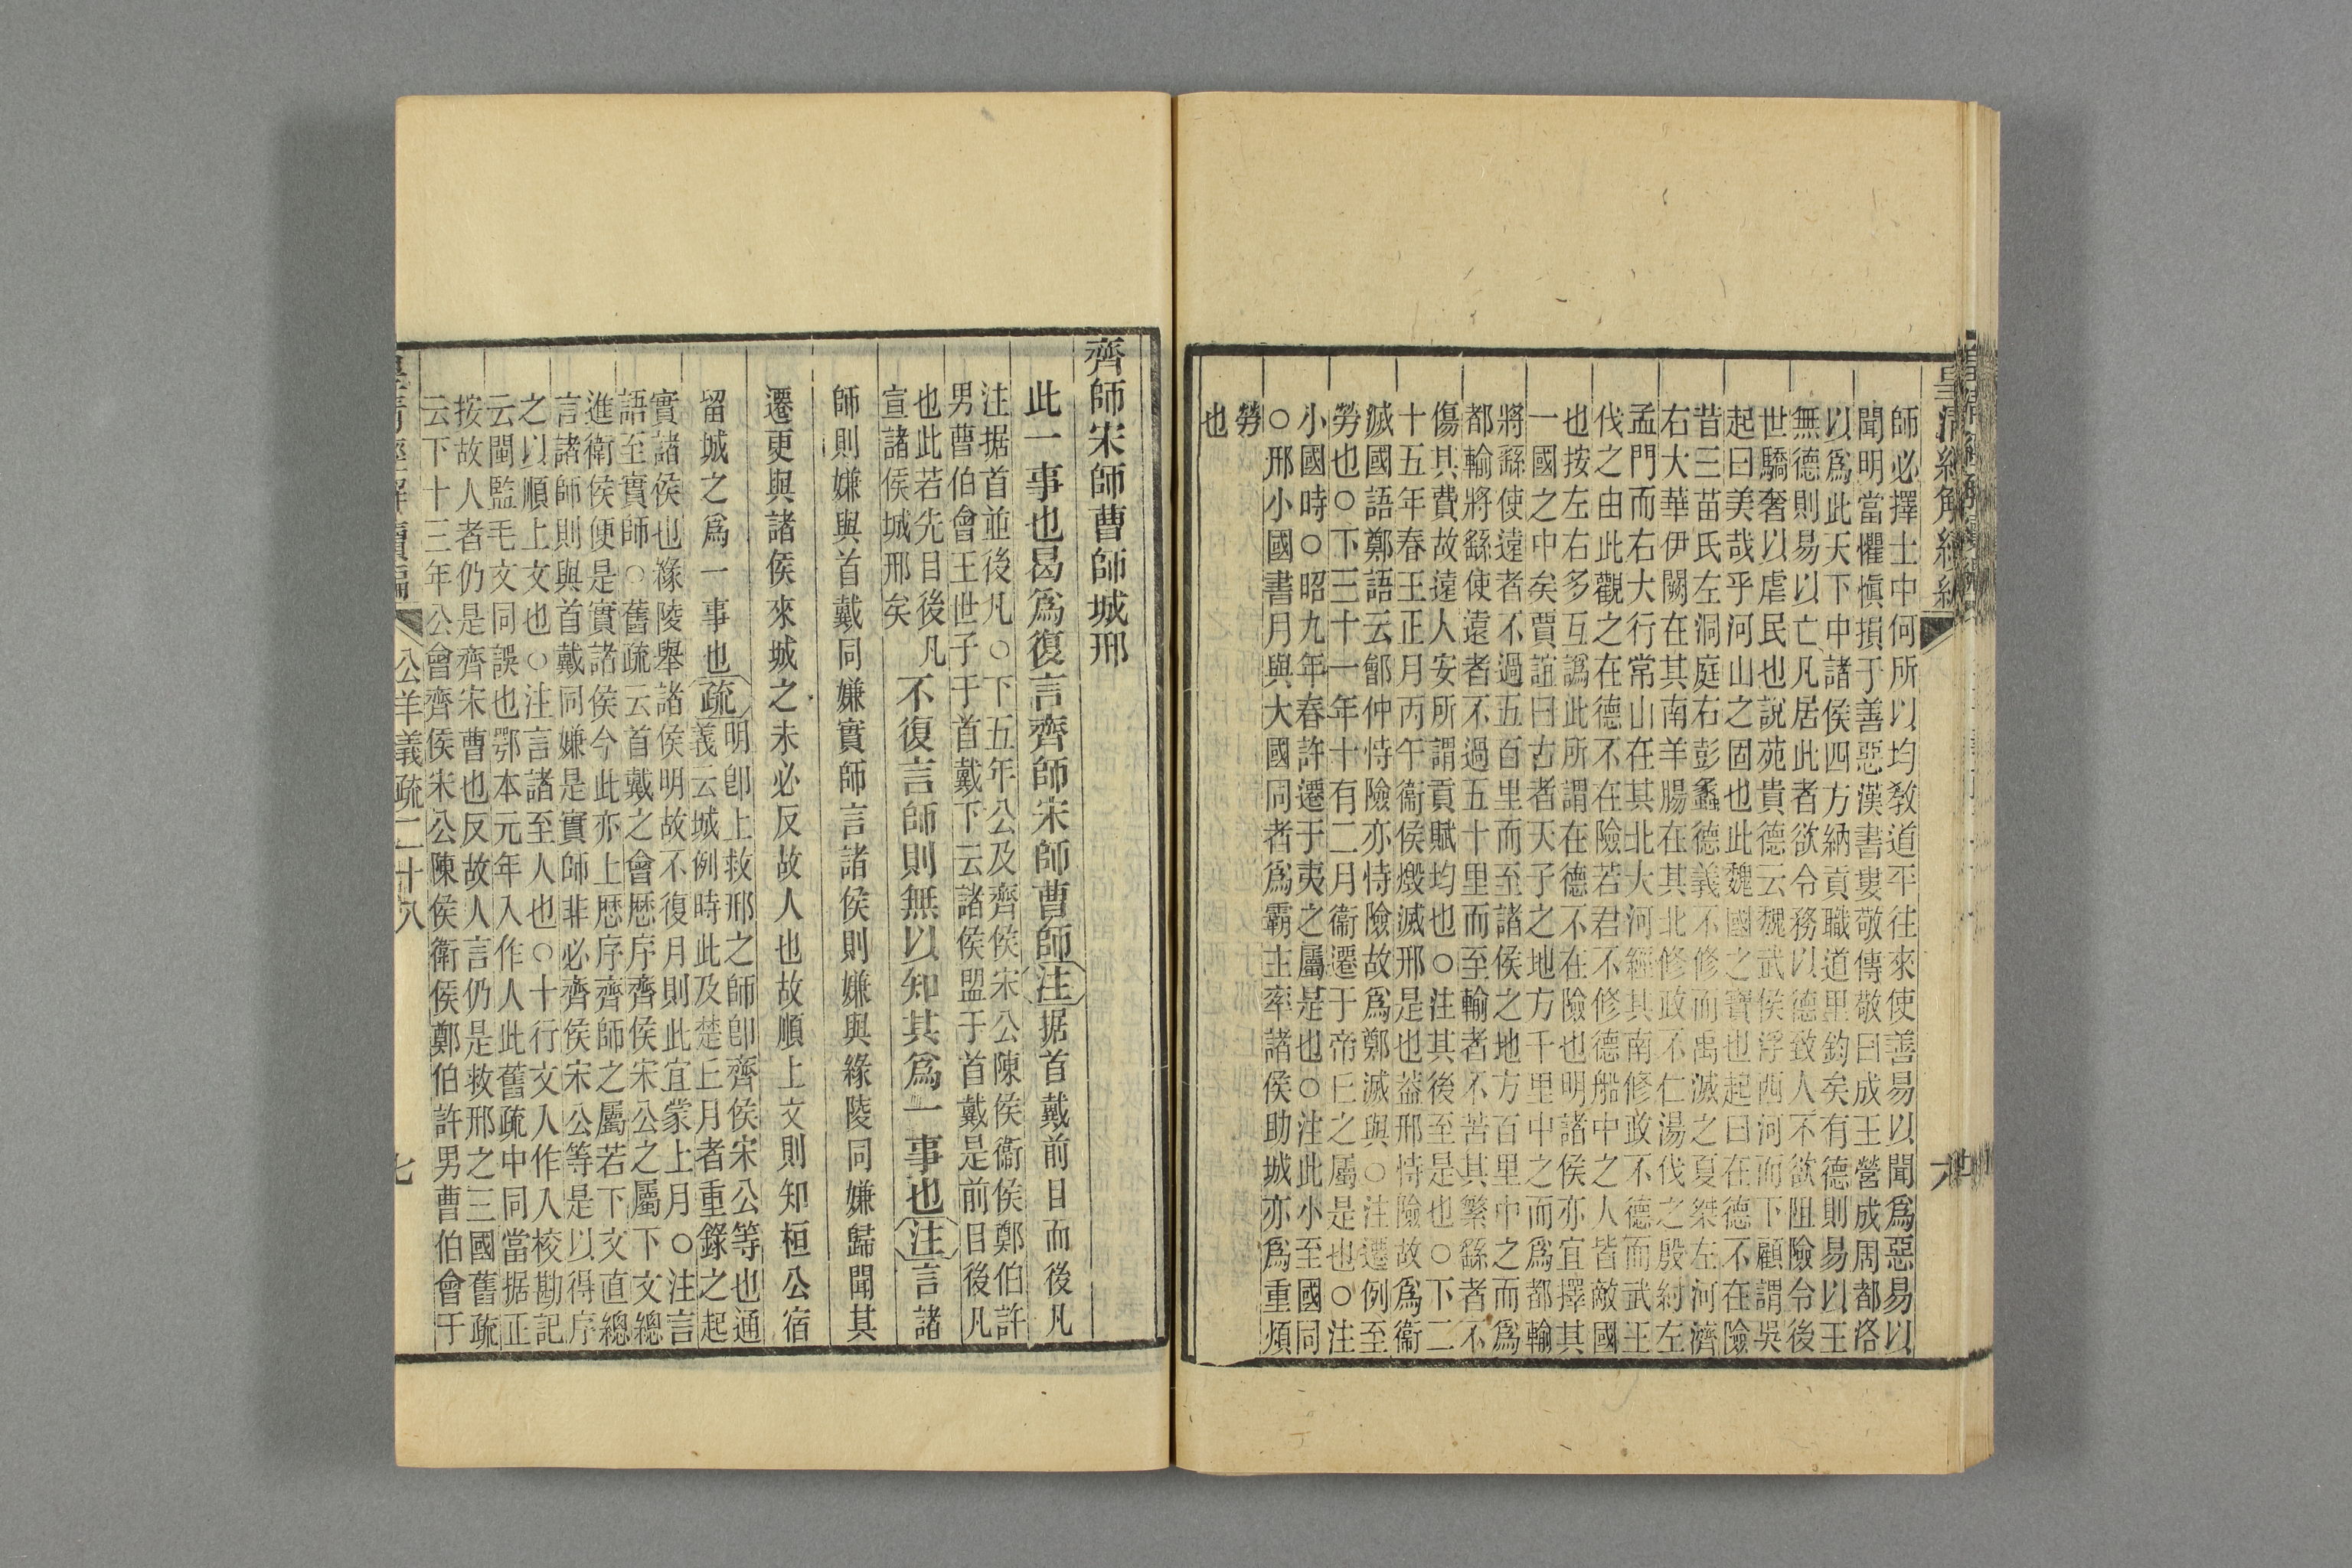 皇清經解續編
師必擇士中何所以均敎道平往來使善易以聞爲惡易以
聞明當懼愼損于善惡漢書婁敬傳敬曰成王營成周都洛
以爲此天下中諸侯四方納貢職道里鈞矣有德則易以王
無德則易以亡凡居此者欲令務以德致人不欲阻險令後
世驕奢以虐民也說苑貴德云魏武侯浮西河而下顧謂吳
起曰美哉乎河山之固也此魏國之寶也起曰在德不在險
昔三苗氏左洞庭右彭蠡德義不修而禹滅之夏桀左河濟
右大華伊闕在其南羊腸在其北修政不仁湯伐之殷紂左
孟門而右大行常山在其北大河經其南修政不德而武王
伐之由此觀之在德不在險若君不修德船中之人皆敵國
也按左右多互譌此所謂在德不在險也明諸侯亦宜擇其
一國之中矣賈誼曰古者天子之地方千里中之而爲都輸
將繇使遠者不過五百里而至諸侯之地方百里中之而爲
都輸將繇使遠者不過五十里而至輸者不苦其繁繇者不
傷其費故遠人安所謂貢賦均也○注其後至是也○下二
十五年春王正月丙午衞侯燬滅邢是也蓋邢恃險故爲衞
滅國語鄭語云鄶仲恃險亦恃險故爲鄭滅與○注遷例至
勞也○下三十一年十有二月衞遷于帝丘之屬是也○注
小國時○昭九年春許遷于夷之屬是也○注此小至國同
○邢小國書月與大國同者爲霸主率諸侯助城亦爲重煩
勞
也
六
齊師宋師曹師城邢
此一事也曷爲復言齊師宋師曹師注据首戴前目而後凡
注据首並後凡○下五年公及齊侯宋公陳侯衞侯鄭伯許
男曹伯會王世子于首戴下云諸侯盟于首戴是前目後凡
也此若先目後凡
宣諸侯城邢矣
不復言師則無以知其爲一事也注言諸
師則嫌與首戴同嫌實師言諸侯則嫌與緣陵同嫌歸聞其
遷更與諸侯來城之未必反故人也故順上文則知桓公宿
留城之爲一事也疏
明卽上救邢之師卽齊侯宋公等也通
義云城例時此及楚丘月者重錄之起
實諸侯也緣陵舉諸侯明故不復月則此宜蒙上月○注言
諸至實師○舊疏云首戴之會歷序齊侯宋公之屬下文總
進衞侯便是實諸侯今此亦上歷序齊師之屬若下文直總
言諸師則與首戴同嫌是實師非必齊侯宋公等是以得序
之以順上文也○注言諸至人也○十行文人作人校勘記
云閩監毛文同誤也鄂本元年入作人此舊疏中同當据正
按故人者仍是齊宋曹也反故人言仍是救邢之三國舊疏
云下十三年公會齊侯宋公陳侯衛侯鄭伯許男曹伯會于
皇清經解續編
公羊義疏二十八
七